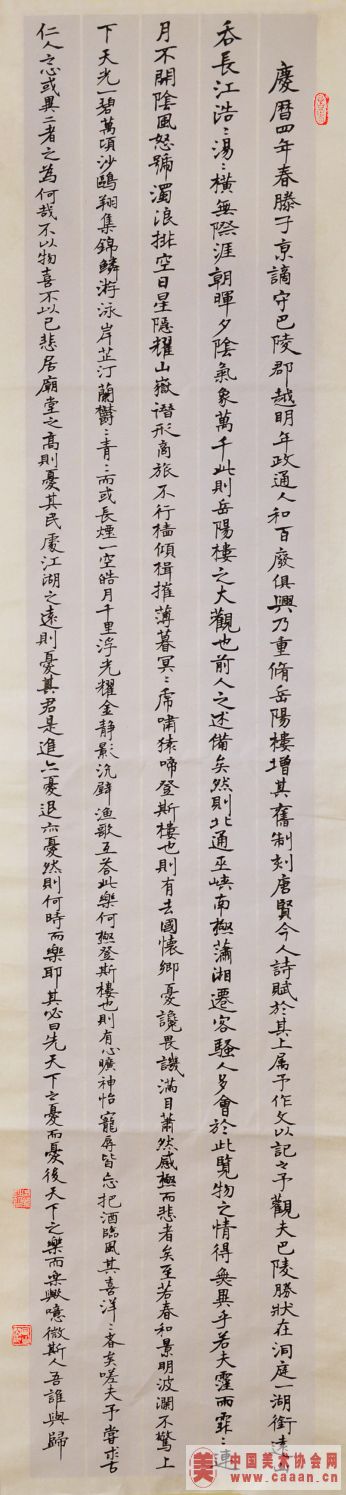 慶曆四年春滕子京謫守巴陵郡越明年政通人和百廢俱興乃重脩岳陽樓增其舊制刻唐賢今人詩賦於其上属予作文以記之予觀夫巴陵勝状在洞庭一湖銜遠山
吞長江浩〻湯〻橫無際涯朝暉夕陰氣象萬千此則岳陽樓之大觀也前人之述備矣然則北通巫峽南極瀟湘遷客騷人多會於此覧物之情得無異乎若夫霪雨霏〻連
月不開陰風怒號濁浪排空日星隱耀山嶽潛形商旅不行檣傾楫摧薄暮冥〻虎嘯猿啼登斯樓也則有去國懷鄉憂讒畏譏滿目蕭然感極而悲者矣至若春和景明波瀾不驚上
下天光一碧萬頃沙鷗翔集錦鱗游泳岸芷汀蘭鬱〻青〻而或長煙一空皓月千里浮光耀金静影沉璧渔歌互答此樂何極登斯樓也則有心曠神怡寵辱皆忘把酒臨風其喜洋〻者矣嗟夫予嘗求古
仁人之心或異二者之為何哉不以物喜不以己悲居廟堂之高則憂其民處江湖之遠則憂其君是進亦憂退亦憂然則何時而樂耶其必曰先天下之憂而憂後天下之樂而樂歟噫微斯人吾誰與歸
中国美术协会网
www.caaan.cn
美